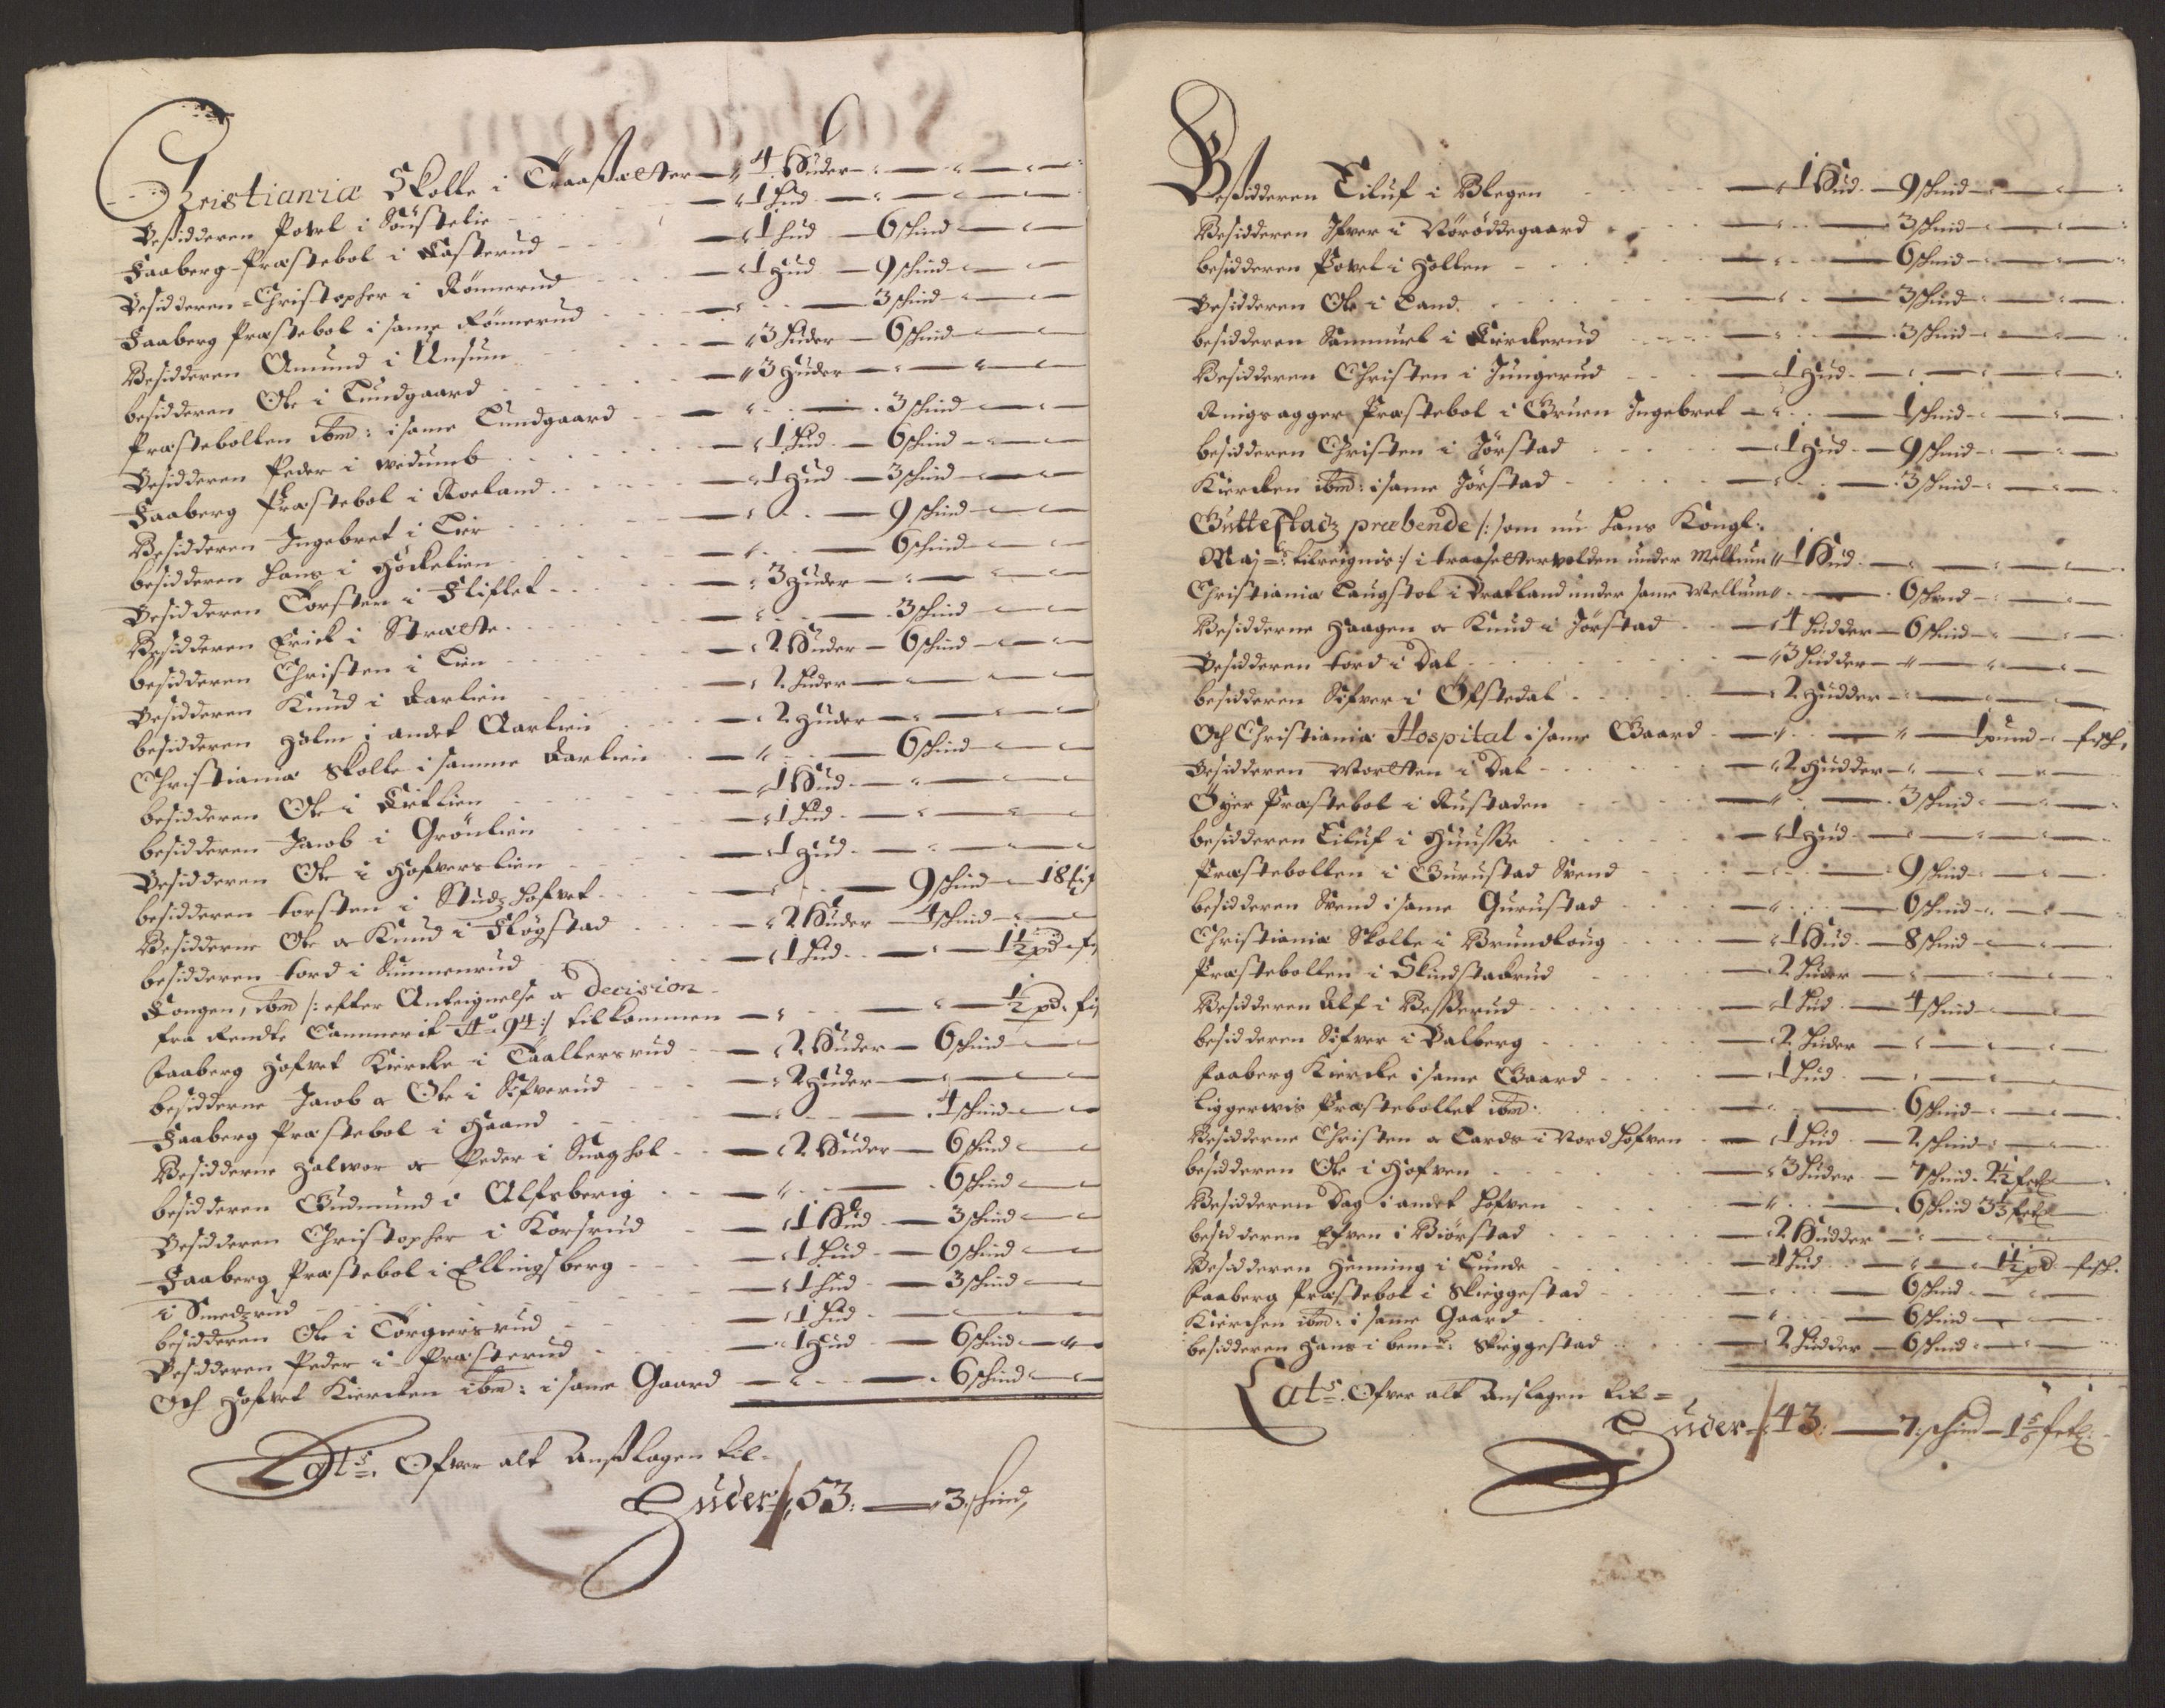 Christiania Skolle i Traasæetter — 4 Huder
Besidderen Povel i Sou##stelie — 1 Hud
Faaberg Præstebol i Kasterud — 1 hud — 6 schind
Besidderen Christopher i Rønnerud — 1 Hud — 9 schind
Faaberg Præstebol i same Rønnerud — 3 schind
Besidderen Amund i Unsum — 3 Huder — 6 schind
besidderen Ole i Lundgaard — 3 Huder
Præstebollen ibm: i same Lundgaard — 3 schind
Besidderen Peder i Wedumb — 1 Hud — 6 schind
Faaberg Præstebol i Roeland — 1 Hud — 3 schind
Besidderen Ingebret i Lier — 9 schind
besidderen Hans i Høckelien — 6 schind
Besidderen Torsten i Fliflet — 3 Huder
Besidderen Erick i Strætte — 3 schind
besidderen Christen i Lien — 2 Huder — 6 schind
Besidderen Knud i Aarlien — 2 Huder
besidderen Holm i andet Aarlien — 2 Huder
Christiania Skolle i samme Aarlien — 6 schind
besidderen Ole i Kitlien — 1 Hud
besidderen Jacob i Grønlien — 1 Hud
Besidderen Ole i Hofverslien — 1 Hud
besidderen Torsten i Studzhofvet — 9 schind — 18 fi
Besidderne Ole og Knud i Fløgstad — 2 Huder — 4 schind
besidderen Tord i Summenrud — 1 Hud — 1½ pd fi
Kongen, ibm /: efter Anteignelse og Decision
fra Rendte Cammerit Ao 94 :/ tilkommen — ½ pd. fi
Faaberg Hofvet Kiercke i Taallersrud — 2 Huder — 6 schind
besidderne Jacob og Ole i Sifverud — 2 Huder
Faaberg Præstebol i Haand — 4 schind
Besidderne Halvor og Peder i Snaghol — 2 Huder — 6 schind
besidderen Gudmund i Alfsberig — 6 schind
Besidderen Christopher i Korsrud — 1 Hud — 3 schind
Faaberg Præstebol i Ellingsberg — 1 Hud — 6 schind
i Smedzrud — 1 Hud — 3 schind
besidderen Ole i Torgiersrud — 1 Hud
Besidderen Peder i Præsterud — 1 Hud — 6 schind
Och Hofvet Kiercken ibm: i same Gaard — 6 schind
Lats. Ofver alt Anslagen til
Huder 53: — 3 schind,
Besidderen Eiluf i Blegen — 1 Hud — 9 schind
Besidderen Ifver i Nørøddegaard — 3 schind
besidderen Povel i Hollen — 6 schind
Besidderen Ole i Land — 3 schind
besidderen Sammuel i Kirckerud — 3 schind
Besidderen Christen i Jungerud — 1 Hud
Ringsagger Præstebol i Gruen Ingebret — 1 schind
besidderen Christen i Jørstad — 1 Hud — 9 schind
Kiercken ibm: i same Jørstad — 3 schind
Guttestadz præbende /: som nu Hans Kongl:
Maj-ts tilleignis :/ i traasettervolden under Mellum — 1 Hud
Christiania Laugstol i Bratland under same Mellum — 6 schind
Besidderne Haagen og Knud i Jørstad — 4 Hudder — 6 schind
Besidderen Tord i Dal — 3 Hudder
besidderen Sifver i Øfstedal — 2 Hudder
Och Christiania Hospital i same Gaard — 1 pund fisch,
Besidderen Morten i Dal — 2 Hudder
Øyer Præstebol i Rustaden — 3 schind
besidderen Eiluf i Huusse — 1 Hud
Præstebollen i Gurustad Svend — 9 schind
besidderen Svend i same Gurustad — 6 schind
Christiania Skolle i Brundloug — 1 Hud — 8 schind
Præstebollen i Skindstakrud — 2 Huder
Besidderen Alf i Besserud — 1 Hud — 4 schind
besidderen Sifver i Balberg — 2 Huder
Faaberg Kiercke i same Gaard — 1 Hud
Liggervis Præstebollet ibm: — 6 schind
Besidderne Christen og Lards i Nordhofven — 1 Hud — 2 schind
besidderen Ole i Hofven — 3 Huder — 7 schind 2½ fetl
Besidderen Dag i andet Hofven — 6 schind 3⅓ fetl
besidderen Efven i Biørstad — 2 Hudder
Besidderen Henning i Lunde — 1 Hud — 1½ pd fisch.
Faaberg Præstebol i Skieggestad — 6 schind
Kierchen ibm: i same Gaard — 6 schind
besidderen Hans i bemte: Skieggestad — 2 Hudder — 6 schind
Lats. Ofver alt Anslagen til
Huder 43: — 7: schind — 1⅚ fetl: